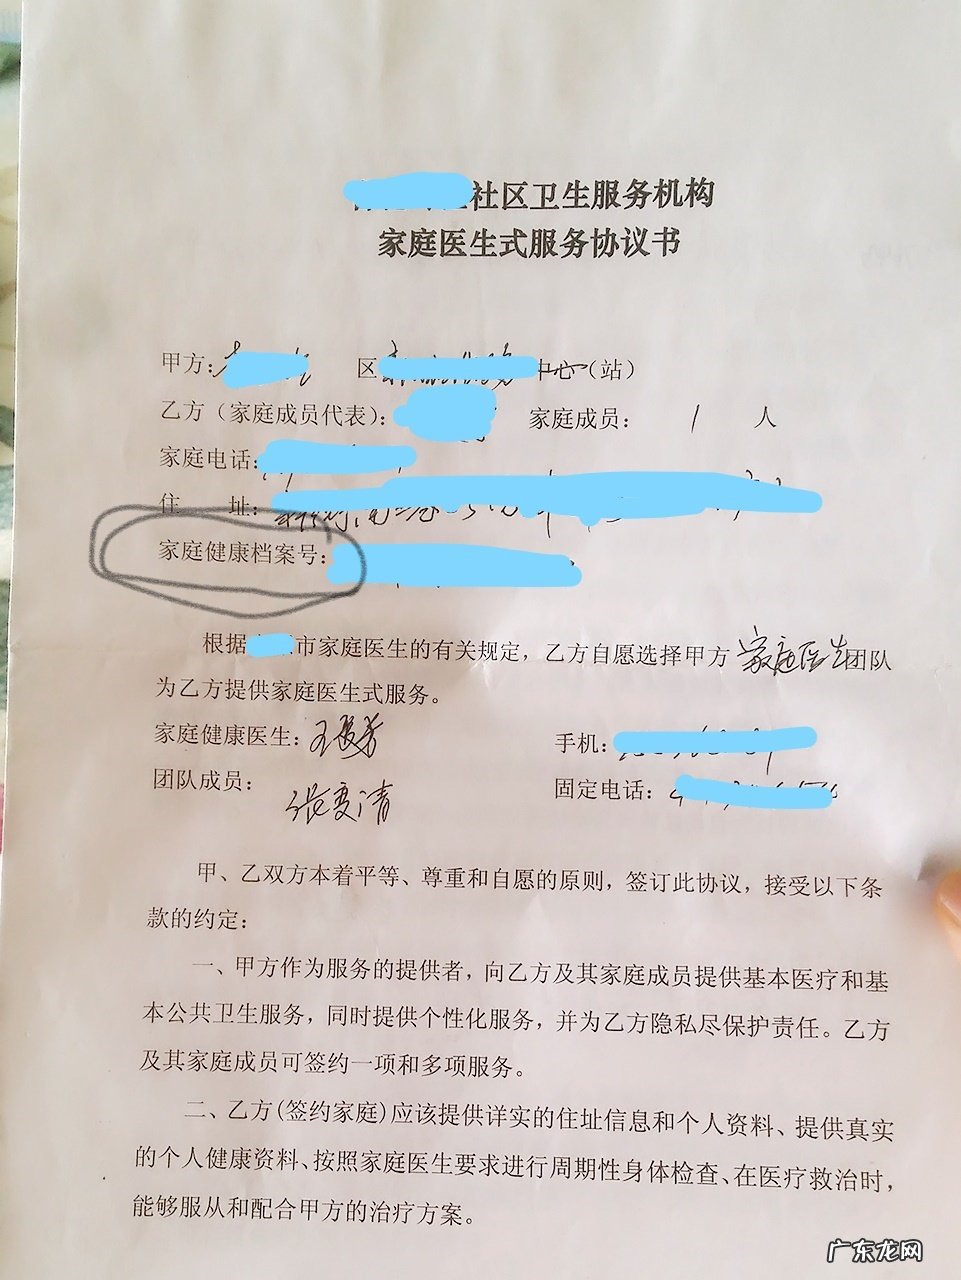 社区卫生服务机构
家庭医生式服务协议书
甲方： 区 中心（站）
乙方（家庭成员代表）： 家庭成员： 1 人
家庭电话：
住 址：
家庭健康档案号：
根据 市家庭医生的有关规定，乙方自愿选择甲方 家庭医生团队
为乙方提供家庭医生式服务。
家庭健康医生： 手机：
团队成员： 固定电话：
张变清
甲、乙双方本着平等、尊重和自愿的原则，签订此协议，接受以下条
款的约定：
一、甲方作为服务的提供者，向乙方及其家庭成员提供基本医疗和基
本公共卫生服务，同时提供个性化服务，并为乙方隐私尽保护责任。乙方
及其家庭成员可签约一项和多项服务。
二、乙方(签约家庭)应该提供详实的住址信息和个人资料、提供真实
的个人健康资料、按照家庭医生要求进行周期性身体检查、在医疗救治时，
能够服从和配合甲方的治疗方案。
广东龙网